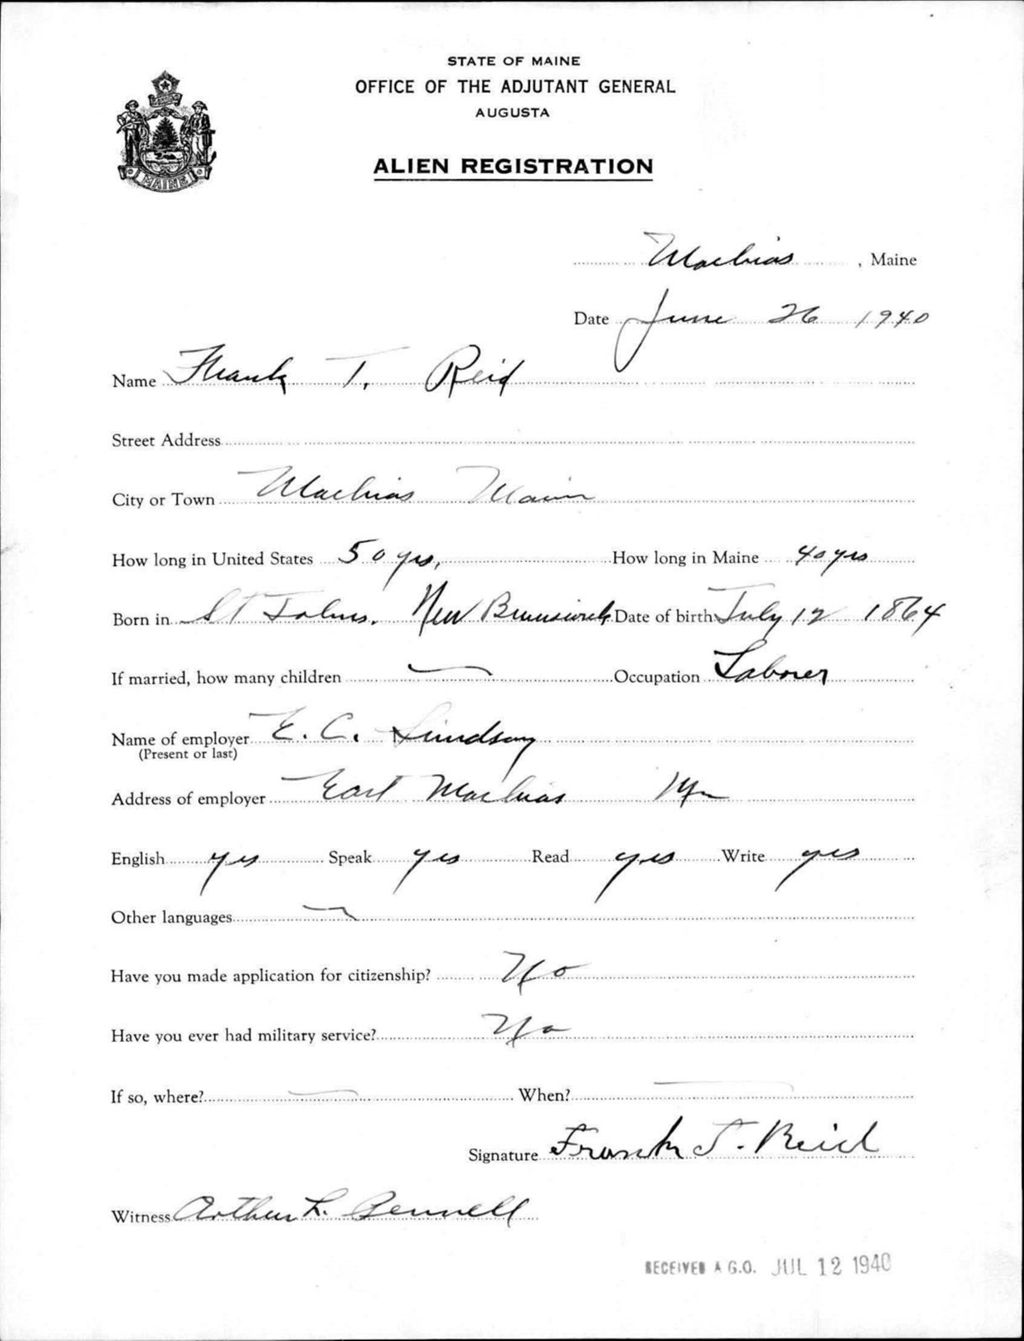 STATE OF MAINE
OFFICE OF THE ADJUTANT GENERAL
AUGUSTA
ALIEN REGISTRATION
MAINE
Machias, Maine
Date June 26 1940
Name Frank T. Reid
Street Address
City or Town Machias Maine
How long in United States 50 yrs, How long in Maine 40 yrs
Born in St Johns. New Brunswick Date of birth July 12 1864
If married, how many children Occupation Laborer
Name of employer E. C. Lindsay
(Present or last)
Address of employer East Machias Me
English yes Speak yes Read yes Write yes
Other languages
Have you made application for citizenship? No
Have you ever had military service? No
If so, where? When?
Signature Frank T. Reid
Witness Arthur L. Pennell
RECEIVED A.G.O. JUL 12 1940